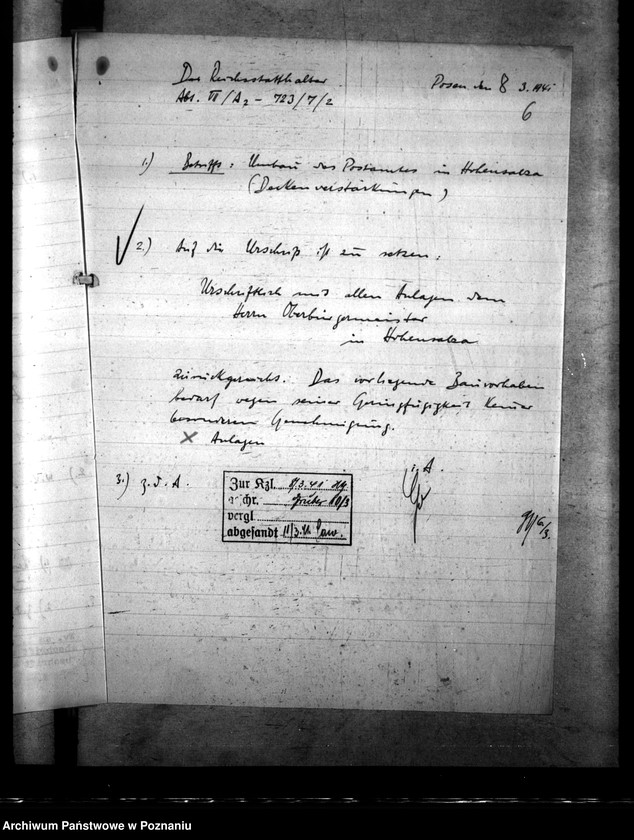 Der Reichsstatthalter
Abt. VII/A2 - 723/7/2
Posen den 8 3. 1941
6
1.) Betrifft: Umbau des Postamtes in Hohensalza
(Deckenverstärkungen)
2.) Auf die Urschrift ist zu setzen:
Urschriftlich mit allen Anlagen dem
Herrn Oberbürgermeister
in Hohensalza
zurückgereicht. Das vorliegende Bauvorhaben
bedarf wegen seiner Geringfügigkeit keiner
besonderen Genehmigung.
X Anlagen
i. A.
3.) z. d. A.
Zur Kzl. 8/3.41
geschr. 10/3
vergl.
abgesandt 11/3.41
Archiwum Państwowe w Poznaniu